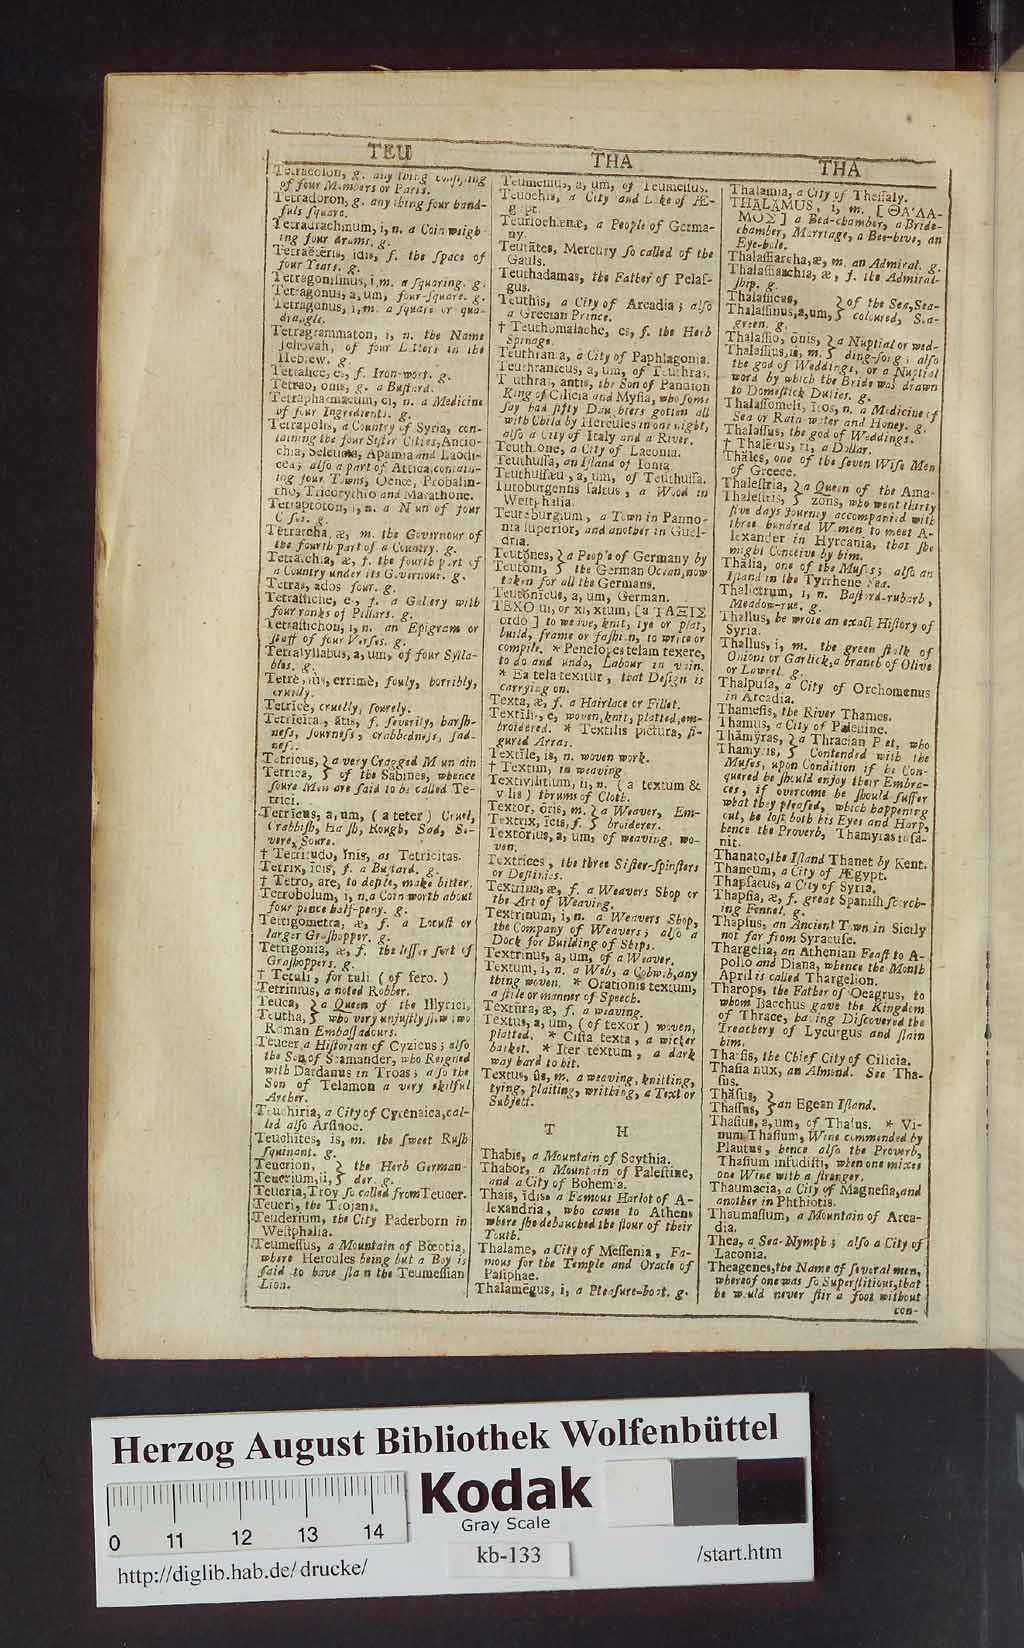 TEU
Tetracolon, g. any thing consisting
of four Members or Parts.
Tetradoron, g. any thing four hand-
fuls ſquare.
Tetradrachmum, i, n. a Coin weigh-
ing four drams. g.
Tetraëteris, idis, f. the ſpace of
four Years. g.
Tetragoniſmus, i, m. a ſquaring. g.
Tetragonus, a, um, four-ſquare. g.
Tetragonus, i, m. a ſquare or qua-
drangle.
Tetragrammaton, i, n. the Name
Jehovah, of four Letters in the
Hebrew. g.
Tetralice, es, f. Iron-wort. g.
Tetrao, onis, g. a Buſtard.
Tetrapharmacum, ci, n. a Medicine
of four Ingredients. g.
Tetrapolis, a Country of Syria, con-
taining the four Siſter Cities, Antio-
chia, Seleucia, Apamia and Laodi-
cea; alſo a part of Attica contain-
ing four Towns, Oence, Probalin-
tho, Tricorythio and Marathone.
Tetraptōton, i, n. a Nun of four
Caſes. g.
Tetrarcha, æ, m. the Governour of
the fourth part of a Country. g.
Tetrarchia, æ, f. the fourth part of
a Country under its Governour. g.
Tetras, ados four. g.
Tetraſtiche, es, f. a Gallery with
four ranks of Pillars. g.
Tetraſtichon, i, n. an Epigram or
ſtaff of four Verſes. g.
Tetraſyllabus, a, um, of four Sylla-
bles. g.
Tetrè, iùs, errimè, fouly, horribly,
cruelly.
Tetricè, cruelly, ſourely.
Tetricita, ātis, f. ſeverity, harſh-
neſs, ſourneſs, crabbedneſs, ſad-
neſs.
Tetricus, } a very Cragged Mountain
Tetrica, } of the Sabines, whence
ſoure Men are ſaid to be called Te-
trici.
Tetricus, a, um, ( a teter ) Cruel,
Crabbiſh, Harſh, Rough, Sad, Se-
vere, Soure.
† Tetritudo, ĭnis, as Tetricitas.
Tetrix, ĭcis, f. a Buſtard. g.
† Tetro, are, to defile, make bitter.
Tetrobolum, i, n. a Coin worth about
four pence half-peny. g.
Tettigometra, æ, f. a Locuſt or
larger Graſhopper. g.
Tettigonia, æ, f. the leſſer ſort of
Graſhoppers. g.
† Tetuli, for tuli ( of fero. )
Tetrinius, a noted Robber.
Teuca, } a Queen of the Illyrici,
Teutha, } who very unjuſtly ſlew two
Roman Embaſſadours.
Teucer a Hiſtorian of Cyzicus; alſo
the Son of Scamander, who Reigned
with Dardanus in Troas; alſo the
Son of Telamon a very skilful
Archer.
Teuchiria, a City of Cyrenaica, cal-
led alſo Arſinoe.
Teuchites, is, m. the ſweet Ruſh
ſquinant. g.
Teucrion, } the Herb German-
Teucrium, ii, } der. g.
Teucria, Troy ſo called from Teucer.
Teucri, the Trojans.
Teuderium, the City Paderborn in
Weſtphalia.
Teumeſſus, a Mountain of Bœotia,
where Hercules being but a Boy is
ſaid to have ſlain the Teumeſſian
Lion.
THA
Teumeſius, a, um, of Teumeſſus.
Teuochis, a City and Lake of Æ-
gypt.
Teuriochænæ, a People of Germa-
ny.
Teutātes, Mercury ſo called of the
Gauls.
Teuthadamas, the Father of Pelaſ-
gus.
Teuthis, a City of Arcadia; alſo
a Grecian Prince.
† Teuthomalache, es, f. the Herb
Spinage.
Teuthrania, a City of Paphlagonia.
Teuthranteus, a, um, of Teuthras.
Teuthras, antis, the Son of Pandion
King of Cilicia and Myſia, who ſome
ſay had fifty Daughters gotten all
with Child by Hercules in one night,
alſo a City of Italy and a River.
Teuthrone, a City of Laconia.
Teuthuſſa, an Iſland of Ionia.
Teuthuſſæu, a, um, of Teuthuſſa.
Tutoburgenſis ſaltus, a Wood in
Weſtphalia.
Teuteburgium, a Town in Panno-
nia ſuperior, and another in Guel-
dria.
Teutŏnes, } a People of Germany by
Teutoni, } the German Ocean, now
taken for all the Germans.
Teutŏnicus, a, um, German.
TEXO ui, or xi, xtum, [a ΤΑΞΙΣ
ordo ] to weave, knit, tye or plat,
build, frame or faſhion, to write or
compile. * Penelopes telam texere,
to do and undo, Labour in vain.
* Ea tela texitur, that Deſign is
carrying on.
Texta, æ, f. a Hairlace or Fillet.
Textĭlis, e, woven, knit, platted, em-
broidered. * Textilis pictura, fi-
gured Arras.
Textĭle, is, n. woven work.
† Textim, in weaving
Textivilitium, ii, n. ( a textum &
vilis ) thrums of Cloth.
Textor, ōris, m. } a Weaver, Em-
Textrix, ĭcis, f. } broiderer.
Textōrius, a, um, of weaving, wo-
ven.
Textrices, the three Siſter-ſpinſters
or Deſtinies.
Textrina, æ, f. a Weavers Shop or
the Art of Weaving.
Textrinum, i, n. a Weavers Shop,
the Company of Weavers; alſo a
Dock for Building of Ships.
Textrinus, a, um, of a Weaver.
Textum, i, n. a Web, a Cobweb, any
thing woven. * Orationis textum,
a ſtile or manner of Speech.
Textūra, æ, f. a weaving.
Textus, a, um, ( of texor ) woven,
platted. * Ciſta texta, a wicker
basket. * Iter textum, a dark
way hard to hit.
Textus, ûs, m. a weaving, knitting,
tying, plaiting, writhing, a Text or
Subject.
T H
Thabis, a Mountain of Scythia.
Thabor, a Mountain of Paleſtine,
and a City of Bohemia.
Thais, ĭdis, a Famous Harlot of A-
lexandria, who came to Athens
where ſhe debauched the flour of their
Youth.
Thalame, a City of Meſſenia, Fa-
mous for the Temple and Oracle of
Paſiphae.
Thalamēgus, i, a Pleaſure-boat. g.
THA
Thalamia, a City of Theſſaly.
THALAMUS, i, m. [ΘΑ'ΛΑ-
ΜΟΣ] a Bed-chamber, a Bride-
chamber, Marriage, a Bee-hive, an
Eye-hole.
Thalaſſiarcha, æ, m. an Admiral. g.
Thalaſſiarchia, æ, f. the Admiral-
ſhip. g.
Thalaſſicus, } of the Sea, Sea-
Thalaſſinus, a, um, } coloured, Sea-
green. g.
Thalaſſio, onis, } a Nuptial or wed-
Thalaſſius, ii, m. } ding-ſong; alſo
the god of Weddings, or a Nuptial
word by which the Bride was drawn
to Domeſtick Duties. g.
Thalaſſomeli, itos, n. a Medicine of
Sea or Rain-water and Honey. g.
Thalaſſus, the god of Weddings.
† Thalerus, ri, a Dollar.
Thāles, one of the ſeven Wiſe Men
of Greece.
Thaleſtria, } a Queen of the Ama-
Thaleſtris, } zons, who went thirty
five days Journey accompanied with
three hundred Women to meet A-
lexander in Hyrcania, that ſhe
might Conceive by him.
Thălia, one of the Muſes; alſo an
Iſland in the Tyrrhene Sea.
Thalictrum, i, n. Baſtard-rubarb,
Meadow-rue. g.
Thallus, he wrote an exact Hiſtory of
Syria.
Thallus, i, m. the green ſtalk of
Onions or Garlick, a branch of Olive
or Lawrel. g.
Thalpuſa, a City of Orchomenus
in Arcadia.
Thameſis, the River Thames.
Thamus, a City of Paleſtine.
Thămўras, } a Thracian Poet, who
Thamyris, } Contended with the
Muſes, upon Condition if he Con-
quered he ſhould enjoy their Embra-
ces, if overcome he ſhould ſuffer
what they pleaſed, which happening
out, he loſt both his Eyes and Harp,
hence the Proverb, Thamyras inſa-
nit.
Thanato, the Iſland Thanet by Kent.
Thaneum, a City of Ægypt.
Thapſacus, a City of Syria.
Thapſia, æ, f. great Spaniſh ſcorch-
ing Fennel. g.
Thapſus, an Ancient Town in Sicily
not far from Syracuſe.
Thargelia, an Athenian Feaſt to A-
pollo and Diana, whence the Month
April is called Thargelion.
Tharops, the Father of Oeagrus, to
whom Bacchus gave the Kingdom
of Thrace, having Diſcovered the
Treachery of Lycurgus and ſlain
him.
Tharſis, the Chief City of Cilicia.
Thaſia nux, an Almond. See Tha-
ſus.
Thăſus, }
Thaſſus, } an Egean Iſland.
Thaſius, a, um, of Thaſus. * Vi-
num Thaſium, Wine commended by
Plautus, hence alſo the Proverb,
Thaſium infudiſti, when one mixes
one Wine with a ſtranger.
Thaumacia, a City of Magneſia, and
another in Phthiotis.
Thaumaſium, a Mountain of Arca-
dia.
Thea, a Sea-Nymph; alſo a City of
Laconia.
Theagenes, the Name of ſeveral men,
whereof one was ſo Superſtitious, that
he would never ſtir a foot without
con-
Herzog August Bibliothek Wolfenbüttel
0 11 12 13 14
Kodak
Gray Scale
http://diglib.hab.de/drucke/
kb-133
/start.htm